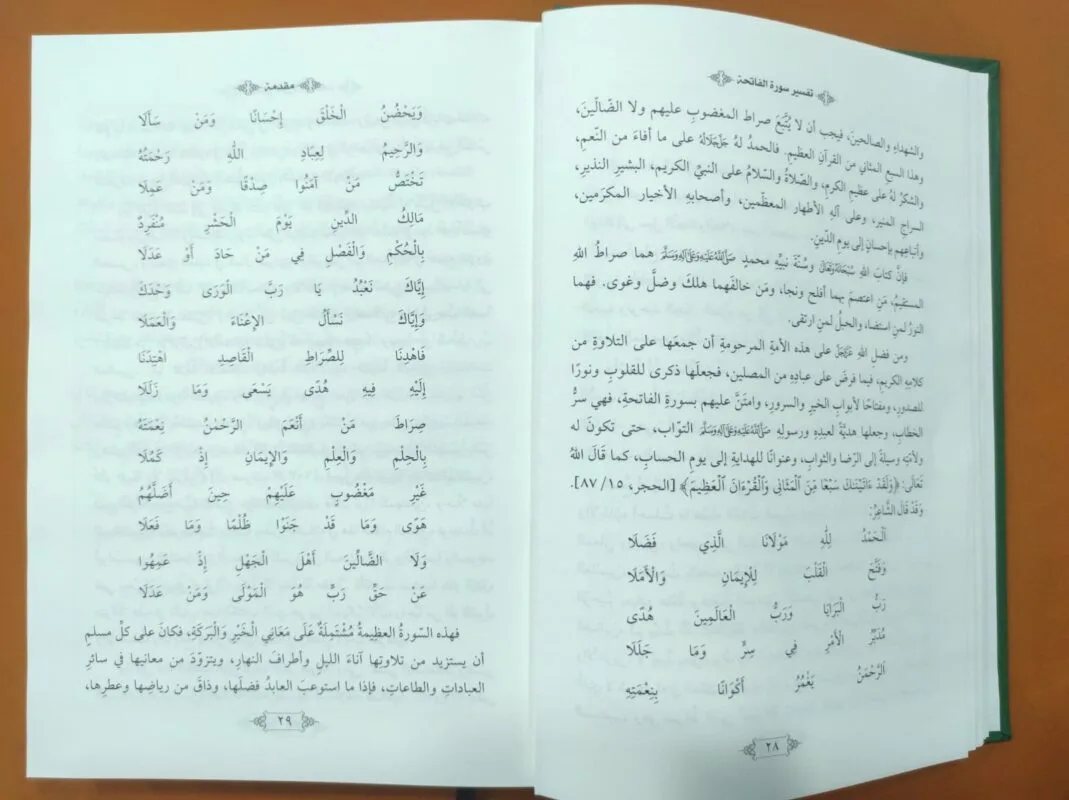 تفسير سورة الفاتحة
والشهداءِ والصالحينَ، فيجب أن لا يُتَّبَعَ صراط المغضوبِ عليهم ولا الضّالّينَ،
وهذا السبع المثاني منَ القرآنِ العظيمِ. فالحمدُ لهُ جَلَّجَلَالُهُ على ما أفاءَ من النّعمِ،
والشكرُ لهُ على عظيمِ الكرمِ، والصّلاةُ والسّلامُ على النبيِّ الكريم، البشيرِ النذيرِ،
السراجِ المنيرِ، وعلى آلهِ الأطهارِ المعظّمين، وأصحابهِ الأخيار المكرّمين،
وأتباعِهم بإحسانٍ إلى يومِ الدّينِ.
فإنَّ كتابَ اللهِ سُبْحَانَهُوَتَعَالَى وسُنّةَ نبيِّهِ محمدٍ صَلَّىاللَّهُعَلَيْهِوَعَلَىآلِهِوَسَلَّمَ هما صراطُ اللهِ
المستقيمُ، مَنِ اعتصمَ بهما أفلح ونجا، ومَن خالفَهما هلكَ وضلَّ وغوى. فهما
النورُ لمنِ استضاء، والحبلُ لمنِ ارتقى.
ومن فضلِ اللهِ عَزَّوَجَلَّ على هذه الأمةِ المرحومةِ أن جمعَها على التلاوةِ من
كلامِهِ الكريمِ، فيما فرضَ على عبادِهِ من المصلين، فجعلَها ذكرى للقلوبِ ونورًا
للصدورِ، ومفتاحًا لأبوابِ الخيرِ والسرورِ، وامتَنَّ عليهم بسورةِ الفاتحةِ، فهي سرُّ
الخطابِ، وجعلها هديّةً لعبدِهِ ورسولِهِ صَلَّىاللَّهُعَلَيْهِوَعَلَىآلِهِوَسَلَّمَ التوّاب، حتى تكونَ له
ولأمّتِهِ وسيلةً إلى الرّضا والثوابِ، وعنوانًا للهدايةِ إلى يومِ الحسابِ، كما قالَ اللهُ
تَعَالَى: ﴿وَلَقَدْ ءَاتَيْنَٰكَ سَبْعًا مِّنَ ٱلْمَثَانِى وَٱلْقُرْءَانَ ٱلْعَظِيمَ﴾ [الحجر، ١٥/ ٨٧].
وَقَدْ قَالَ الشَّاعِرُ:
اَلْحَمْدُ لِلَّهِ مَوْلَانَا الَّذِي فَضَلَا
وَفَتَّحَ الْقَلْبَ لِلْإِيمَانِ وَالْأَمَلَا
رَبُّ الْبَرَايَا وَرَبُّ الْعَالَمِينَ هُدًى
مُدَبِّرُ الْأَمْرِ فِي سِرٍّ وَمَا جَلَلَا
اَلرَّحْمَنُ يَغْمُرُ أَكْوَانًا بِنِعْمَتِهِ
٢٨
مقدمة
وَيَحْضُنُ الْخَلْقَ إِحْسَانًا وَمَنْ سَأَلَا
وَالرَّحِيمُ لِعِبَادِ اللهِ رَحْمَتُهُ
تَخْتَصُّ مَنْ آمَنُوا صِدْقًا وَمَنْ عَمِلَا
مَالِكُ الدِّينِ يَوْمَ الْحَشْرِ مُنْفَرِدٌ
بِالْحُكْمِ وَالْفَصْلِ فِي مَنْ حَادَ أَوْ عَدَلَا
إِيَّاكَ نَعْبُدُ يَا رَبَّ الْوَرَى وَحْدَكَ
وَإِيَّاكَ نَسْأَلُ الإِغْنَاءَ وَالْعَمَلَا
فَاهْدِنَا لِلصِّرَاطِ الْقَاصِدِ اهْتِدْنَا
إِلَيْهِ فِيهِ هُدًى يَسْعَى وَمَا زَلَلَا
صِرَاطَ مَنْ أَنْعَمَ الرَّحْمٰنُ نِعْمَتَهُ
بِالْحِلْمِ وَالْعِلْمِ وَالإِيمَانِ إِذْ كَمُلَا
غَيْرِ مَغْضُوبٍ عَلَيْهِمْ حِينَ أَضَلَّهُمُ
هَوًى وَمَا قَدْ جَنَوْا ظُلْمًا وَمَا فَعَلَا
وَلَا الضَّالِّينَ أَهْلَ الْجَهْلِ إِذْ عَمِهُوا
عَنْ حَقِّ رَبٍّ هُوَ الْمَوْلَى وَمَنْ عَدَلَا
فهذه السّورةُ العظِيمةُ مُشْتَمِلَةٌ عَلَى مَعَانِي الْخَيْرِ وَالْبَرَكَةِ، فكانَ على كلِّ مسلمٍ
أن يستزيد من تلاوتِها آناءَ الليلِ وأطرافَ النهارِ، ويتزوّدَ من معانيها في سائرِ
العباداتِ والطاعاتِ، فإذا ما استوعبَ العابدُ فضلَها، وذاقَ من رياضِها وعطرِها،
٢٩